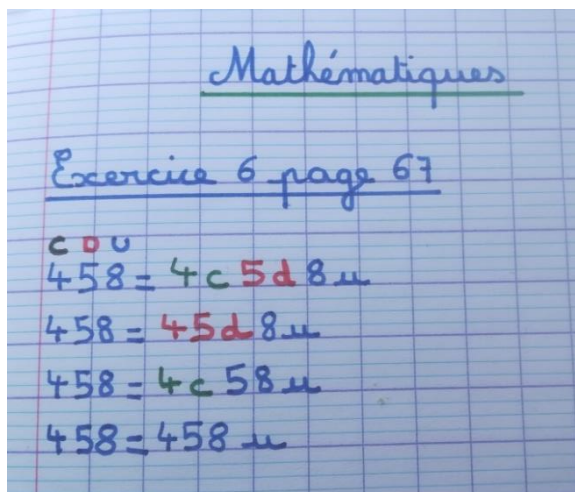 Mathématiques
Exercice 6 page 67
C D U
458 = 4c 5d 8u
458 = 45d 8u
458 = 4c 58u
458 = 458 u